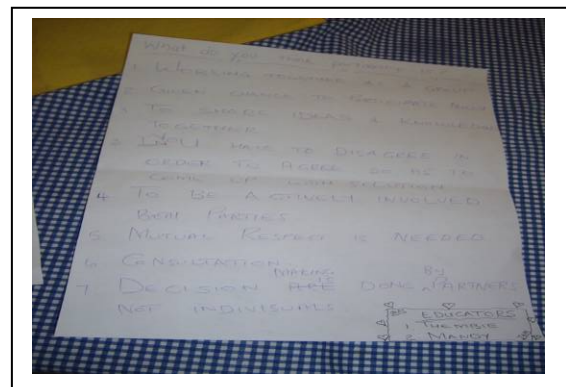 What do you
1. WORKING TOGETHER AS A GROUP
2. GIVEN CHANCE TO PARTICIPATE
3. TO SHARE IDEAS & KNOWLEDGE
TOGETHER
HAVE TO DISAGREE IN
ORDER TO AGREE SO AS TO
COME UP WITH SOLUTION
4 TO BE ACTIVELY INVOLVED
BOTH PARTIES
5 MUTUAL RESPECT IS NEEDED
6 CONSULTATION
MAKING BY
7 DECISION IS DONE PARTNERS
NOT INDIVIDUALS
EDUCATORS
1 THEMBIE
2 MANDY